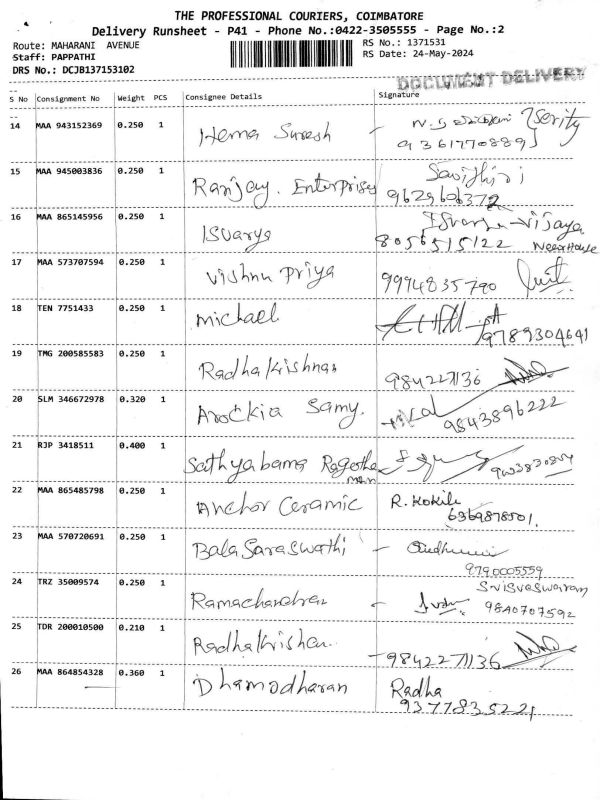 THE PROFESSIONAL COURIERS, COIMBATORE
Delivery Runsheet - P41 - Phone No.:0422-3505555 - Page No.:2
Route: MAHARANI AVENUE
RS No.: 1371531
Staff: PAPPATHI
RS Date: 24-May-2024
DRS No.: DCJB137153102
DOCUMENT DELIVERY
S No Consignment No Weight PCS Consignee Details Signature
14 MAA 943152369 0.250 1 Hema Suresh
9361770889
15 MAA 945003836 0.250 1 Ranjay. Enterprises
9629606372
16 MAA 865145956 0.250 1 Isvarya Isvarya-Vijaya
8056515122 Neer House
17 MAA 573707594 0.250 1 Vishnu Priya 9994835790
18 TEN 7751433 0.250 1 Michael
9789304641
19 TMG 200585583 0.250 1 Radha Krishnan
9842271136
20 SLM 346672978 0.320 1 Arockia Samy.
9843896222
21 RJP 3418511 0.400 1 Sathyabama Ragotha
man
22 MAA 865485798 0.250 1 Anchor Ceramic R. Kokila
6369878501.
23 MAA 570720691 0.250 1 Bala Saraswathi -
9790005559
24 TRZ 35009574 0.250 1 Ramachandran - Srisveswaram
9840707592
25 TDR 200010500 0.210 1 Radha Krishan.
-9842271136
26 MAA 864854328 0.360 1 Dhamodharan Radha
9377835221